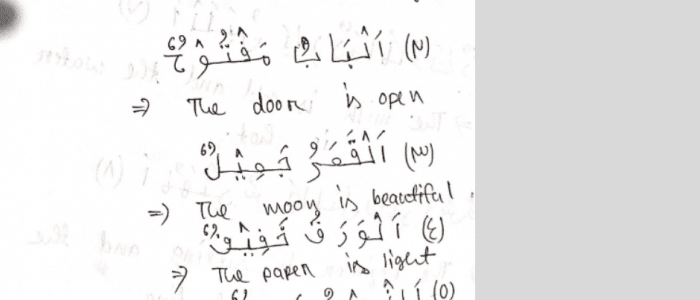 (٢) اَلْبَابُ مَفْتُوْحٌ
⇒ The door is open
(٣) اَلْقَمَرُ جَمِيْلٌ
⇒ The moon is beautiful
(٤) اَلْوَرَقُ خَفِيْفٌ
⇒ The paper is light
(٥)